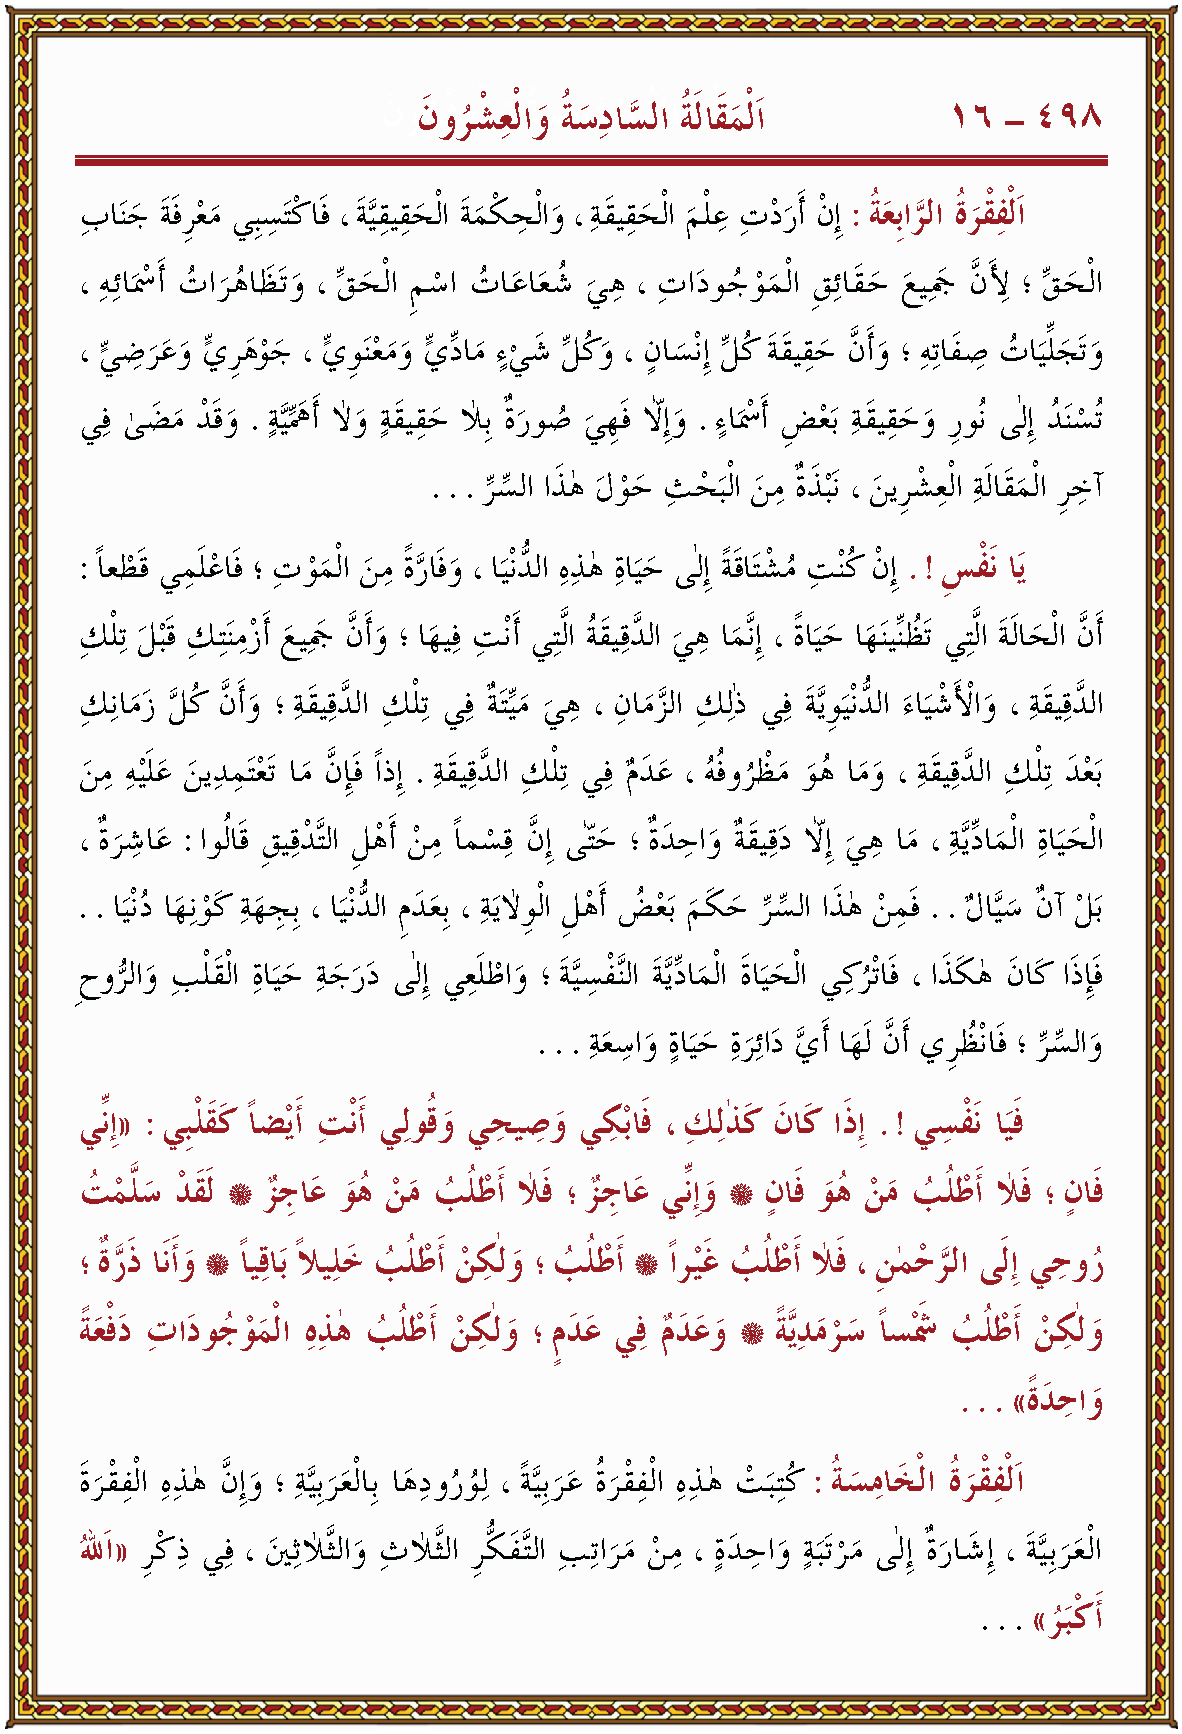 ٤٩٨ – ١٦ اَلْمَقَالَةُ السَّادِسَةُ وَالْعِشْرُونَ
اَلْفِقْرَةُ الرَّابِعَةُ : إِنْ أَرَدْتِ عِلْمَ الْحَقِيقَةِ ، وَالْحِكْمَةَ الْحَقِيقِيَّةَ ، فَاكْتَسِبِي مَعْرِفَةَ جَنَابِ
الْحَقِّ ؛ لِأَنَّ جَمِيعَ حَقَائِقِ الْمَوْجُودَاتِ ، هِيَ شُعَاعَاتُ اسْمِ الْحَقِّ ، وَتَظَاهُرَاتُ أَسْمَائِهِ ،
وَتَجَلِّيَاتُ صِفَاتِهِ ؛ وَأَنَّ حَقِيقَةَ كُلِّ إِنْسَانٍ ، وَكُلِّ شَيْءٍ مَادِّيٍّ وَمَعْنَوِيٍّ ، جَوْهَرِيٍّ وَعَرَضِيٍّ ،
تُسْنَدُ إِلَى نُورِ وَحَقِيقَةِ بَعْضِ أَسْمَاءٍ . وَإِلاَّ فَهِيَ صُورَةٌ بِلاَ حَقِيقَةٍ وَلاَ أَهَمِّيَّةٍ . وَقَدْ مَضَى فِي
آخِرِ الْمَقَالَةِ الْعِشْرِينَ ، نَبْذَةٌ مِنَ الْبَحْثِ حَوْلَ هٰذَا السِّرِّ . . .
يَا نَفْسِ ! . إِنْ كُنْتِ مُشْتَاقَةً إِلَى حَيَاةِ هٰذِهِ الدُّنْيَا ، وَفَارَّةً مِنَ الْمَوْتِ ؛ فَاعْلَمِي قَطْعاً :
أَنَّ الْحَالَةَ الَّتِي تَظُنِّينَهَا حَيَاةً ، إِنَّمَا هِيَ الدَّقِيقَةُ الَّتِي أَنْتِ فِيهَا ؛ وَأَنَّ جَمِيعَ أَزْمِنَتِكِ قَبْلَ تِلْكِ
الدَّقِيقَةِ ، وَالْأَشْيَاءَ الدُّنْيَوِيَّةَ فِي ذٰلِكِ الزَّمَانِ ، هِيَ مَيِّتَةٌ فِي تِلْكِ الدَّقِيقَةِ ؛ وَأَنَّ كُلَّ زَمَانِكِ
بَعْدَ تِلْكِ الدَّقِيقَةِ ، وَمَا هُوَ مَظْرُوفُهُ ، عَدَمٌ فِي تِلْكِ الدَّقِيقَةِ . إِذاً فَإِنَّ مَا تَعْتَمِدِينَ عَلَيْهِ مِنَ
الْحَيَاةِ الْمَادِّيَّةِ ، مَا هِيَ إِلاَّ دَقِيقَةٌ وَاحِدَةٌ ؛ حَتَّى إِنَّ قِسْماً مِنْ أَهْلِ التَّدْقِيقِ قَالُوا : عَاشِرَةٌ ،
بَلْ آنٌ سَيَّالٌ . . فَمِنْ هٰذَا السِّرِّ حَكَمَ بَعْضُ أَهْلِ الْوِلاَيَةِ ، بِعَدَمِ الدُّنْيَا ، بِجِهَةِ كَوْنِهَا دُنْيَا . .
فَإِذَا كَانَ هٰكَذَا ، فَاتْرُكِي الْحَيَاةَ الْمَادِّيَّةَ النَّفْسِيَّةَ ؛ وَاطْلَعِي إِلَى دَرَجَةِ حَيَاةِ الْقَلْبِ وَالرُّوحِ
وَالسِّرِّ ؛ فَانْظُرِي أَنَّ لَهَا أَيَّ دَائِرَةِ حَيَاةٍ وَاسِعَةٍ . . .
فَيَا نَفْسِي ! . إِذَا كَانَ كَذٰلِكِ ، فَابْكِي وَصِيحِي وَقُولِي أَنْتِ أَيْضاً كَقَلْبِي : «إِنِّي
فَانٍ ؛ فَلاَ أَطْلُبُ مَنْ هُوَ فَانٍ ۞ وَإِنِّي عَاجِزٌ ؛ فَلاَ أَطْلُبُ مَنْ هُوَ عَاجِزٌ ۞ لَقَدْ سَلَّمْتُ
رُوحِي إِلَى الرَّحْمٰنِ ، فَلاَ أَطْلُبُ غَيْراً ۞ أَطْلُبُ ؛ وَلٰكِنْ أَطْلُبُ خَلِيلاً بَاقِياً ۞ وَأَنَا ذَرَّةٌ ؛
وَلٰكِنْ أَطْلُبُ شَمْساً سَرْمَدِيَّةً ۞ وَعَدَمٌ فِي عَدَمٍ ؛ وَلٰكِنْ أَطْلُبُ هٰذِهِ الْمَوْجُودَاتِ دَفْعَةً
وَاحِدَةً» . . .
اَلْفِقْرَةُ الْخَامِسَةُ : كُتِبَتْ هٰذِهِ الْفِقْرَةُ عَرَبِيَّةً ، لِوُرُودِهَا بِالْعَرَبِيَّةِ ؛ وَإِنَّ هٰذِهِ الْفِقْرَةَ
الْعَرَبِيَّةَ ، إِشَارَةٌ إِلَى مَرْتَبَةٍ وَاحِدَةٍ ، مِنْ مَرَاتِبِ التَّفَكُّرِ الثَّلاَثِ وَالثَّلاَثِينَ ، فِي ذِكْرِ «اَللهُ
أَكْبَرُ» . . .